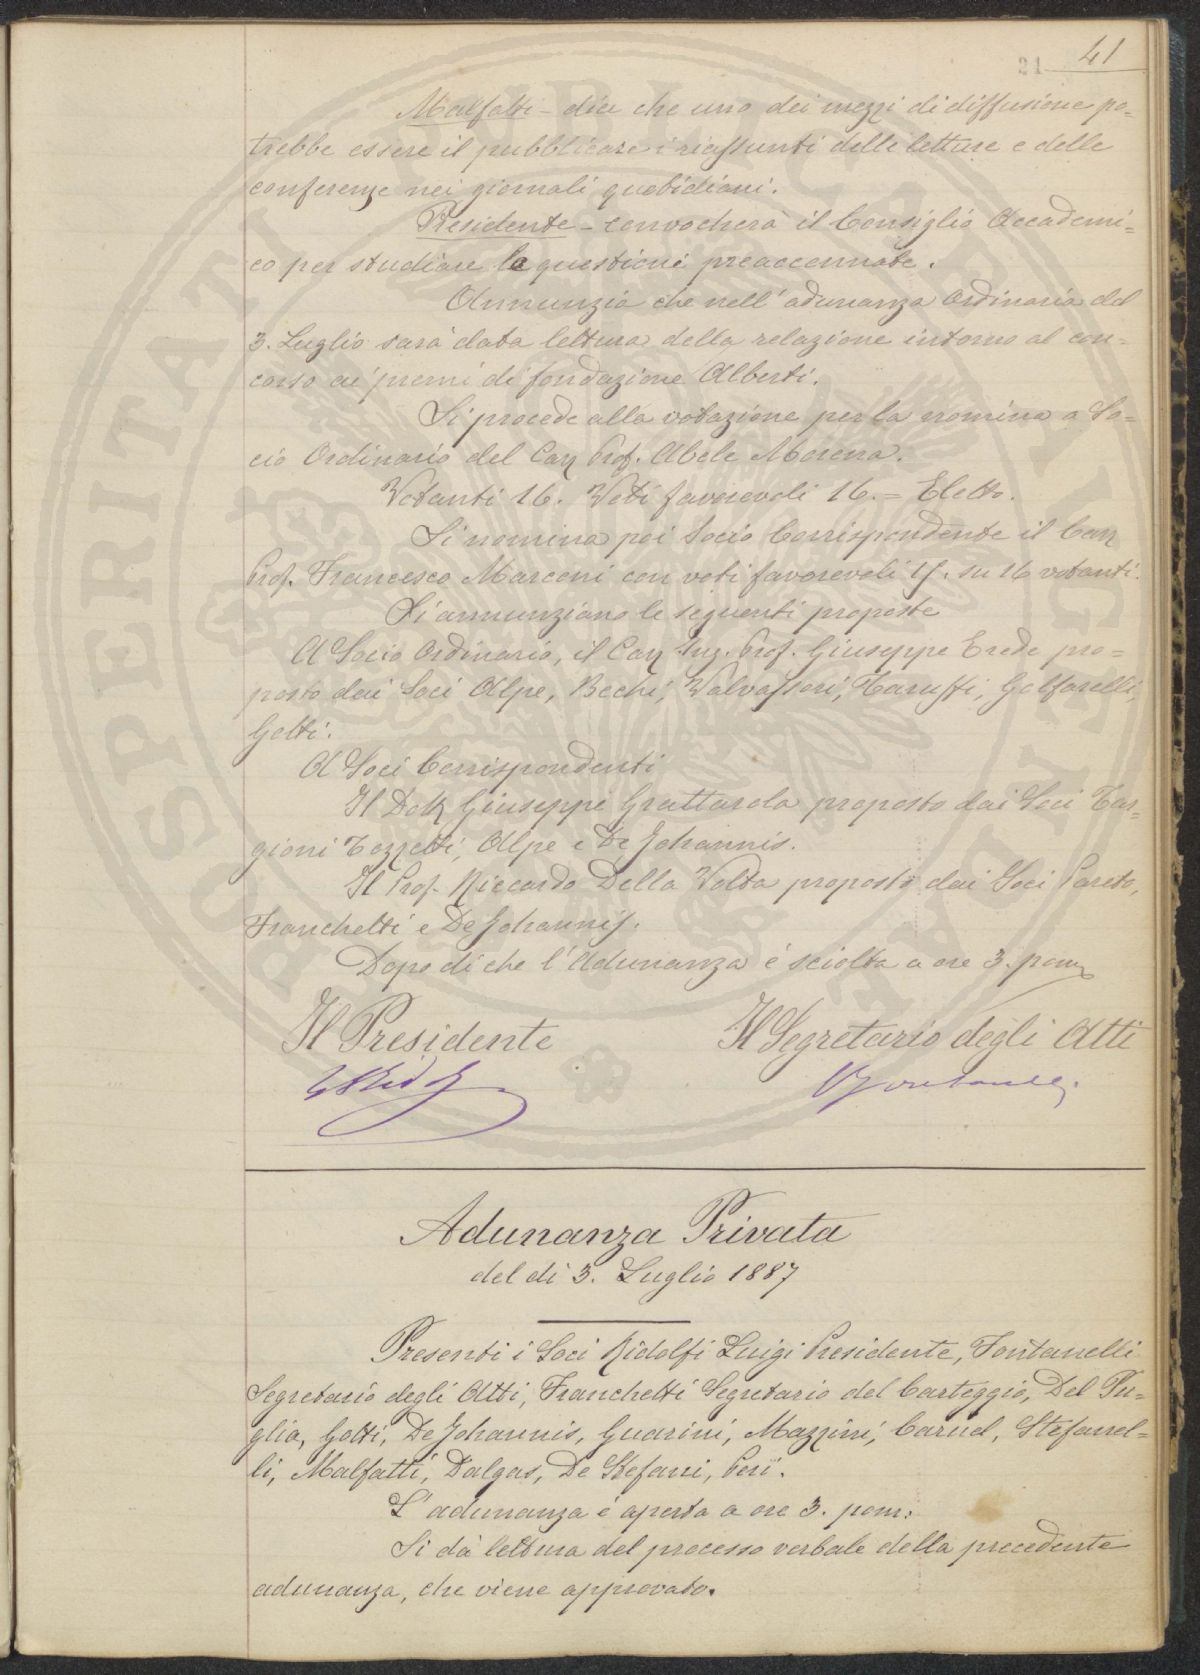 41
21
Malfatti - dice che uno dei mezzi di diffusione po-
trebbe essere il pubblicare i riassunti delle letture e delle
conferenze nei giornali quotidiani.
Presidente - convocherà il Consiglio Accademi=
co per studiare le questioni preaccennate.
Annunzia che nell'adunanza Ordinaria del
3. Luglio sarà data lettura della relazione intorno al con=
corso ai premi di fondazione Alberti.
Si procede alla votazione per la nomina a So=
cio Ordinario del Cav. Prof. Abele Morena.
Votanti 16. Voti favorevoli 16. = Eletto.
Si nomina poi Socio Corrispondente il Cav
Prof. Francesco Marconi con voti favorevoli 15. su 16 votanti.
Si annunziano le seguenti proposte
A Socio Ordinario, il Cav Ing. Prof. Giuseppe Erede pro=
posto dai Soci Alpe, Bechi, Valvassori, Taruffi, Golfarelli,
Gotti.
A Soci Corrispondenti
Il Dott Giuseppe Grattarola proposto dai Soci Tar=
gioni Tozzetti, Alpe e De Johannis.
Il Prof. Riccardo Della Volta proposto dai Soci Pareto,
Franchetti e De Johannis.
Dopo di che l'Adunanza é sciolta a ore 3. pom
Il Presidente Il Segretario degli Atti
LRidolfi Fontanelli
Adunanza Privata
del dì 3. Luglio 1887
Presenti i Soci Ridolfi Luigi Presidente, Fontanelli
Segretario degli Atti, Franchetti Segretario del Carteggio, Del Pu-
glia, Gotti, De Johannis, Guarini, Mazzini, Caruel, Stefanel-
li, Malfatti, Dalgas, De Stefani, Peri.
L'adunanza é aperta a ore 3. pom:
Si dà lettura del processo verbale della precedente
adunanza, che viene approvato.
PROSPERITATI PVBLICAE AVGENDAE